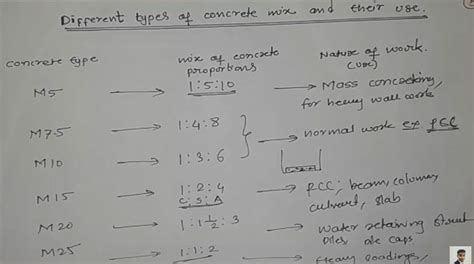 Different types of concrete mix and their use.
concrete type mix of concrete proportions Nature of work. (use)
M5 → 1:5:10 → Mass concreting, for heavy wall work
M7.5 → 1:4:8
→ normal work ex PCC
M10 → 1:3:6
M15 → 1:2:4 → RCC; beam, column,
C:S:A culvard, slab
M20 → 1:1½:3 → water retaining
Piles caps
M25 → 1:1:2 → Heavy loadings,